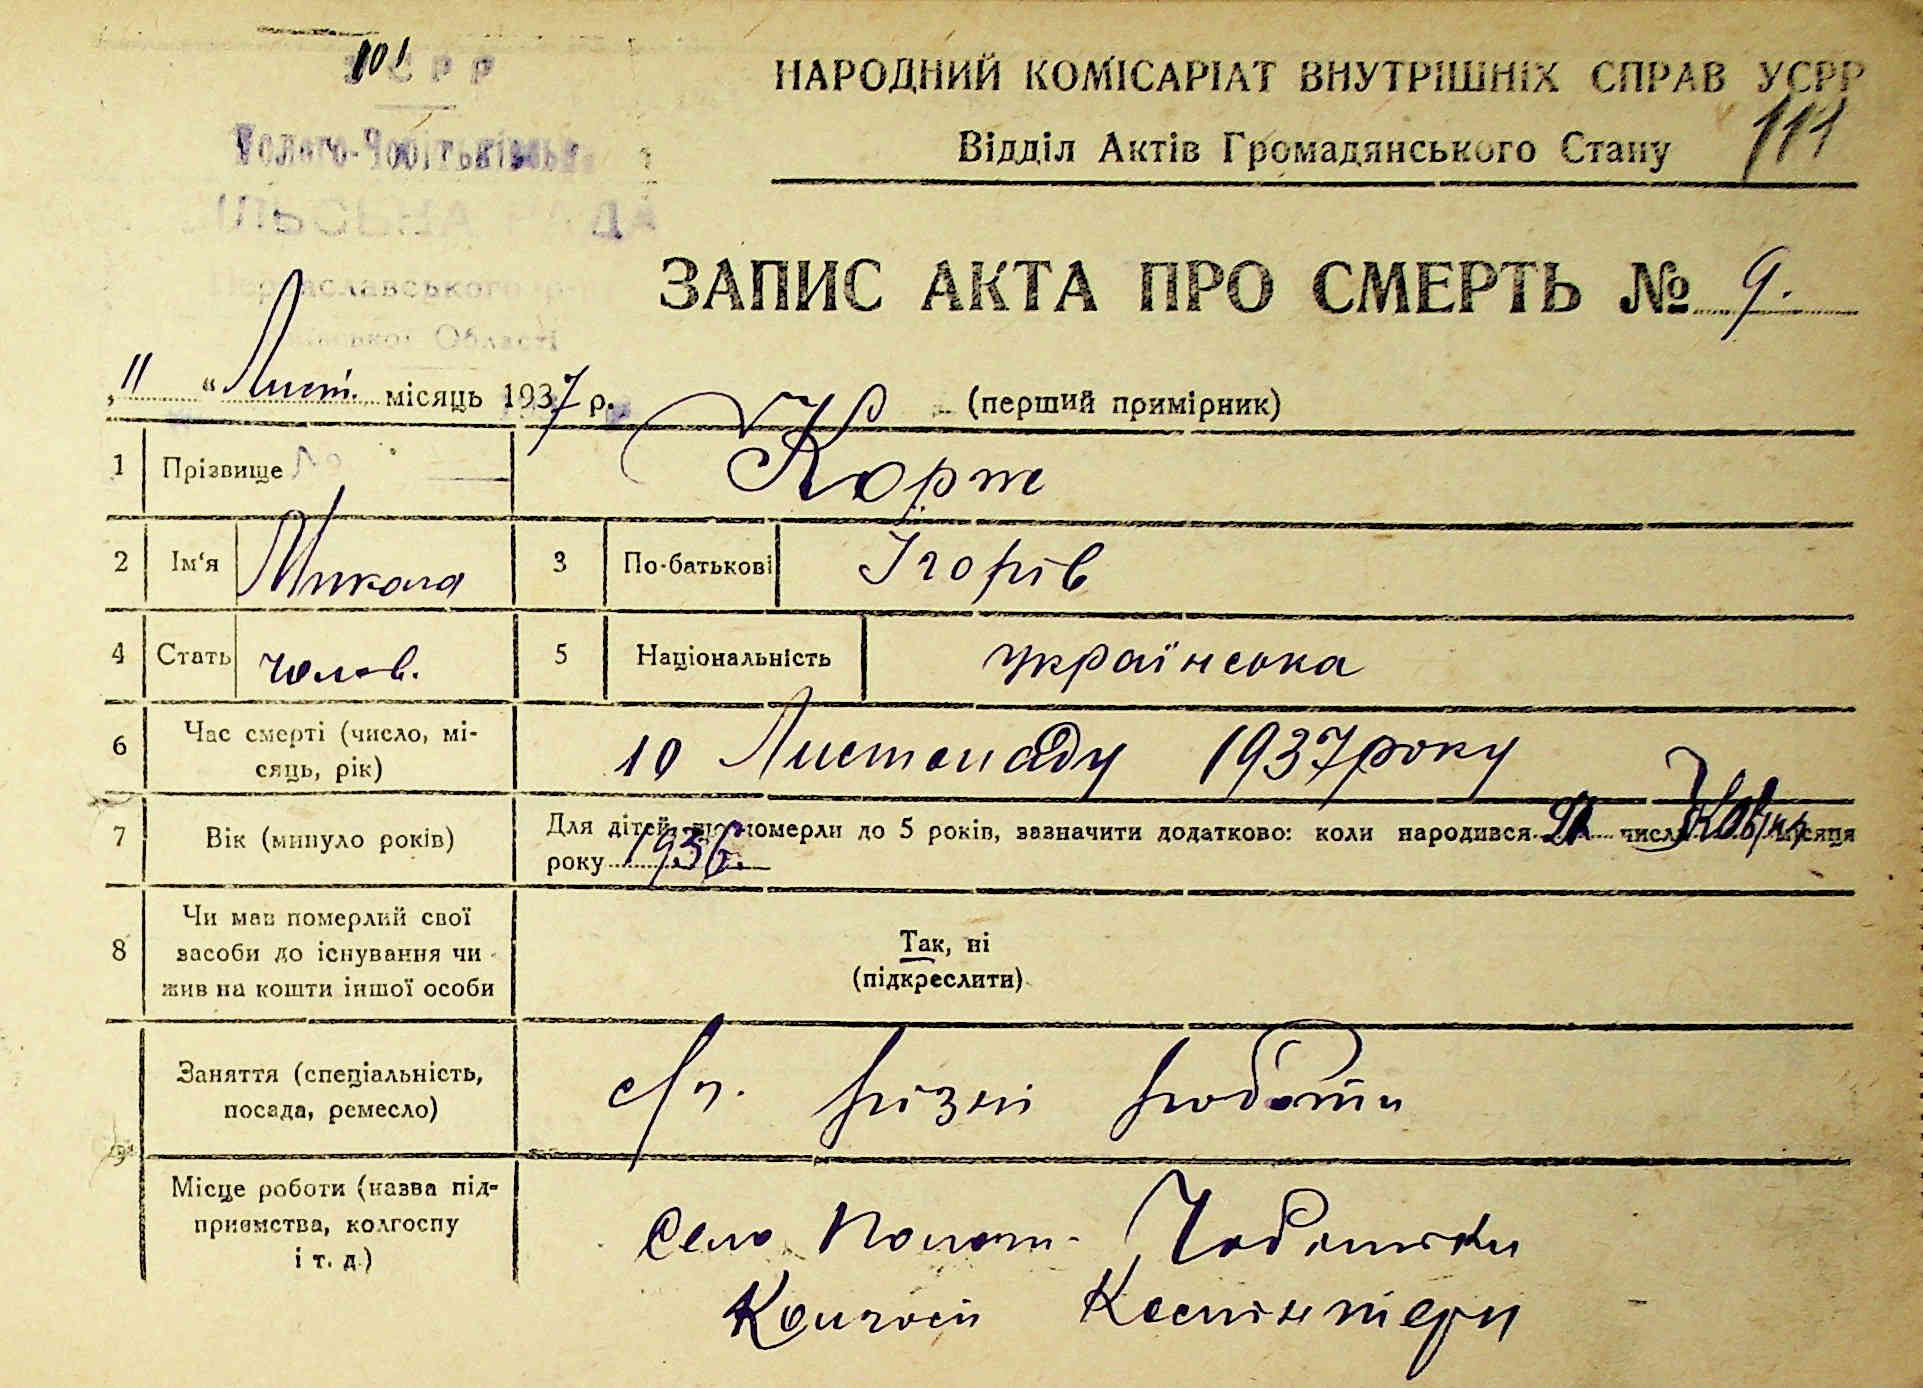 101
УСРР
НАРОДНИЙ КОМІСАРІАТ ВНУТРІШНІХ СПРАВ УСРР
111
Відділ Актів Громадянського Стану
Області
ЗАПИС АКТА ПРО СМЕРТЬ № 9.
„11“ Лист. місяць 1937 р.
(перший примірник)
1 Прізвище Корж
2 Ім‘я Микола 3 По-батькові Ігорів
4 Стать чолов. 5 Національність українська
6 Час смерті (число, мі-
сяць, рік) 10 Листопаду 1937 року
7 Вік (минуло років) Для дітей, що померли до 5 років, зазначити додатково: коли народився 21 числа Жовтня місяця
року 1936.
8 Чи мав померлий свої
засоби до існування чи
жив на кошти іншої особи
Так, ні
(підкреслити)
9 Заняття (спеціальність,
посада, ремесло) с/г. різні роботи
Місце роботи (назва під-
приємства, колгоспу
і т. д.)
Село Полого-Чобітьки
Колгосп Комінтерн